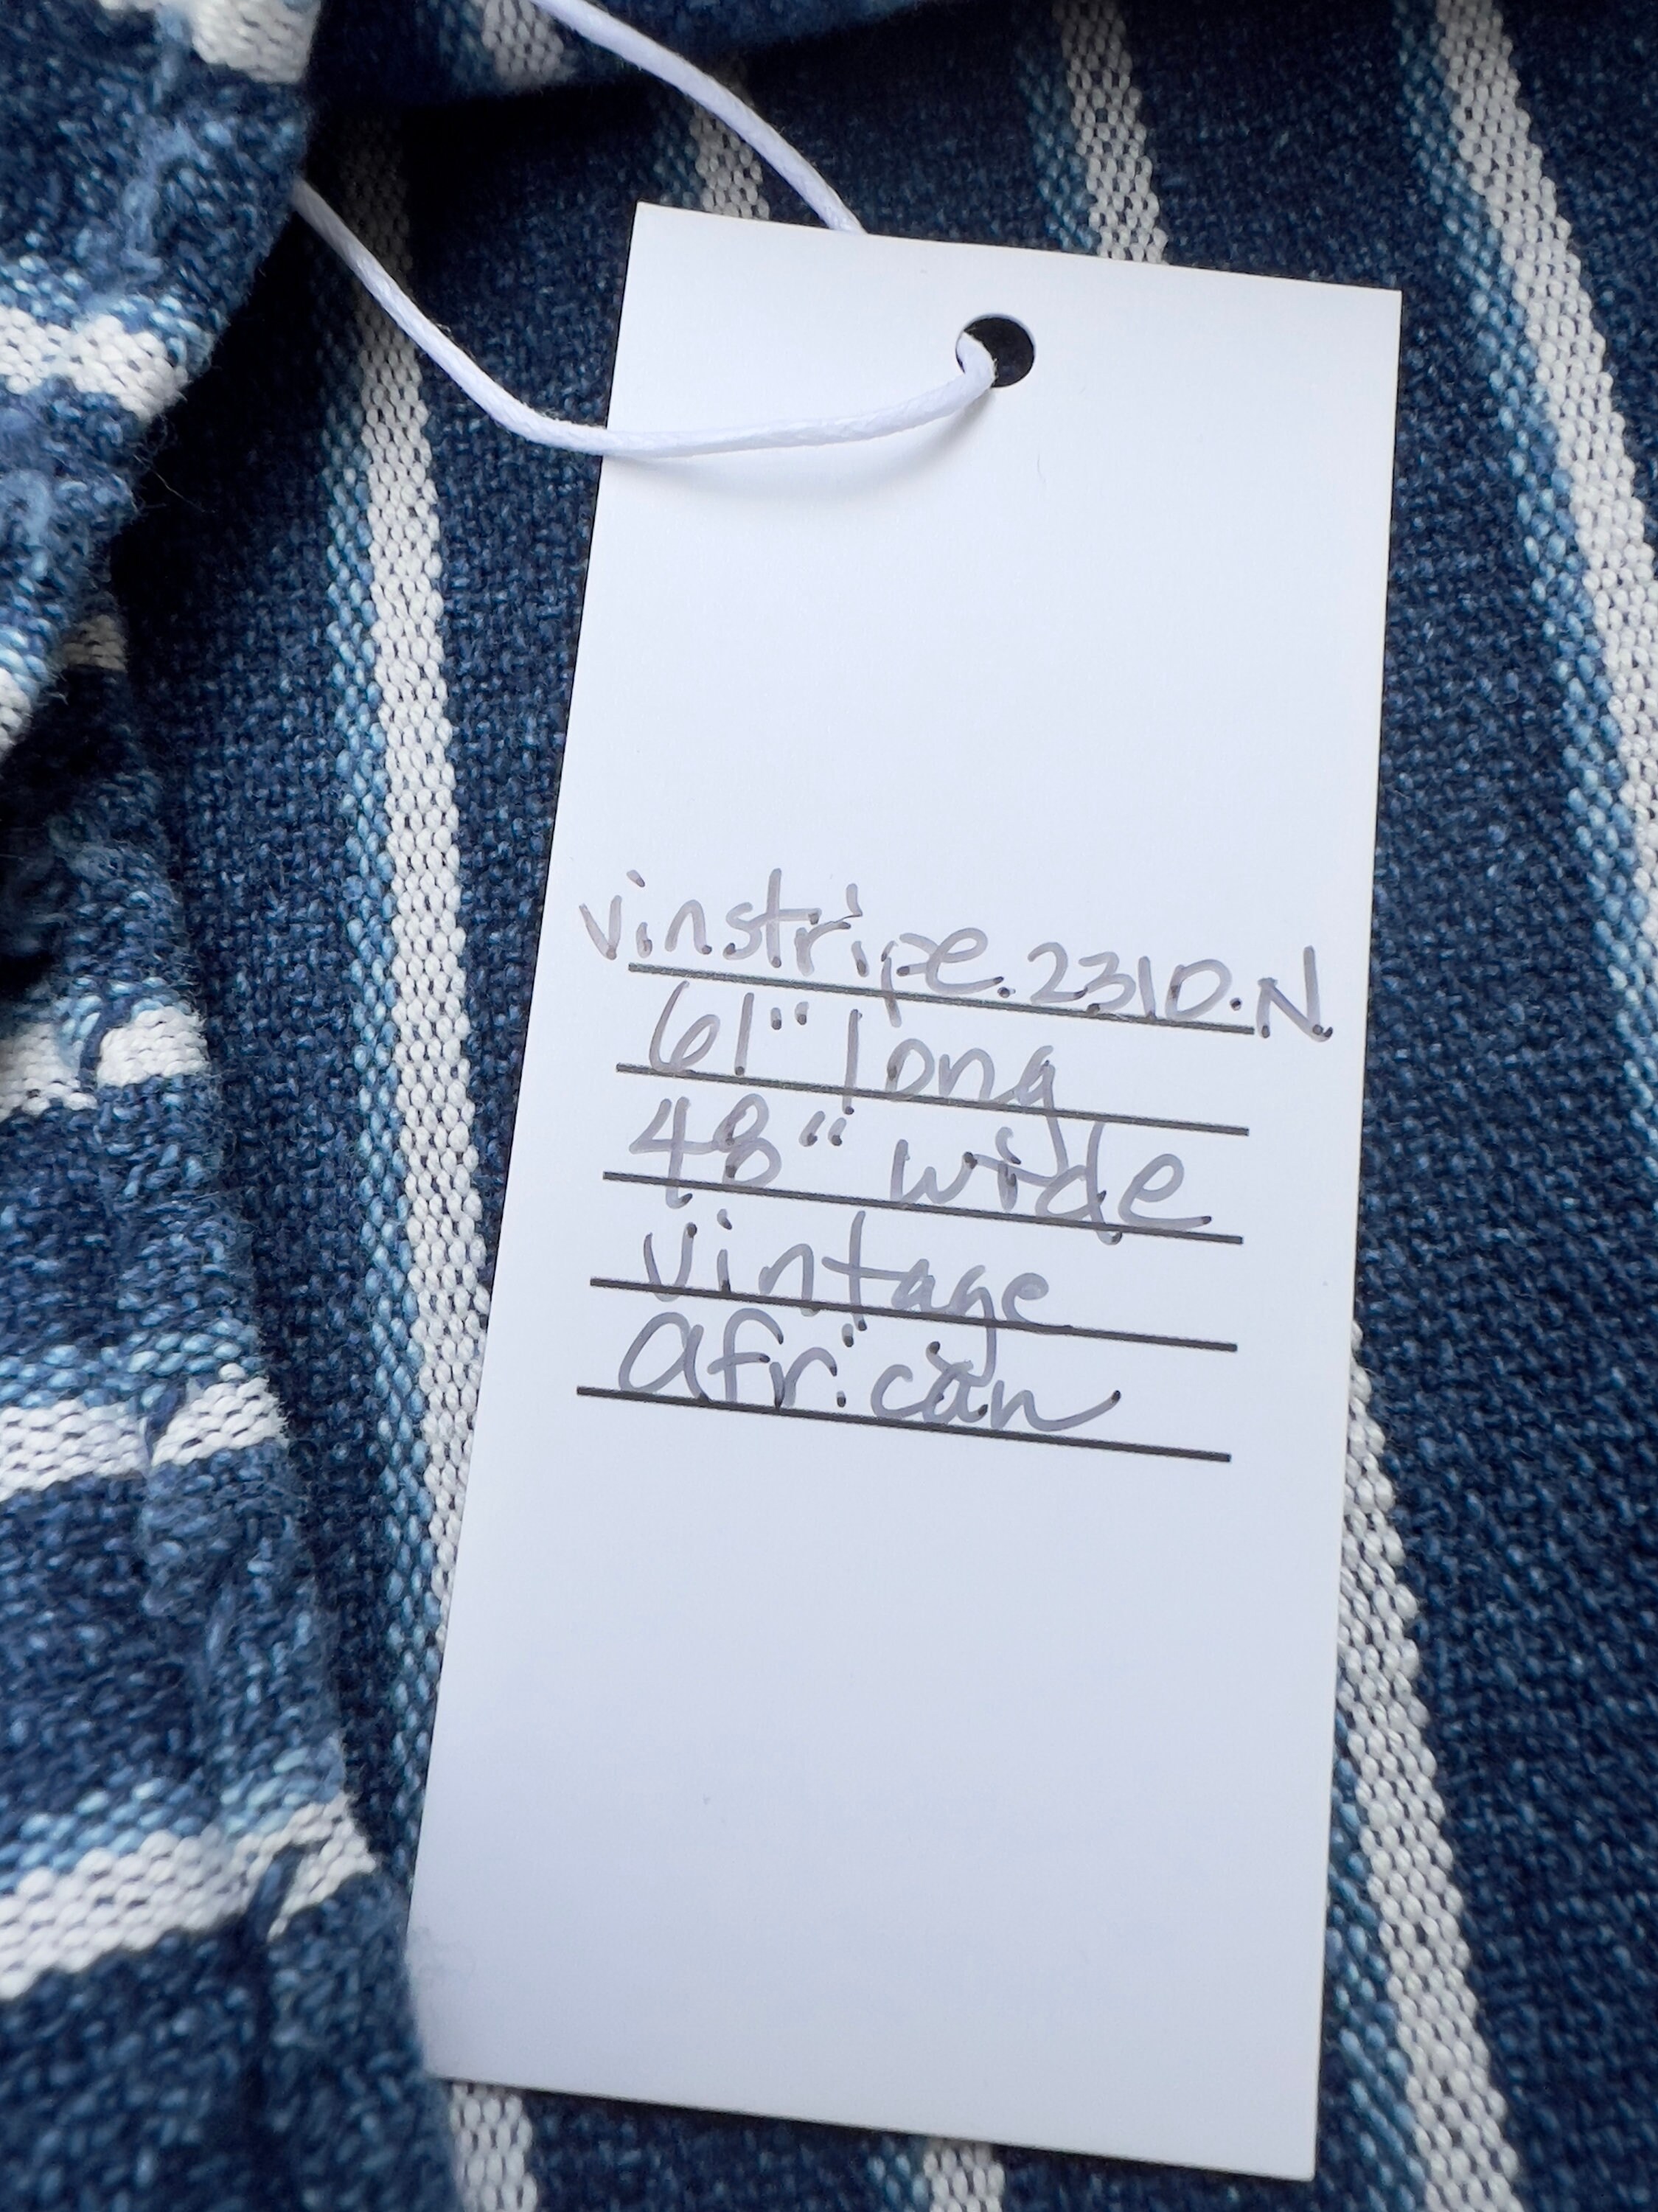 vinstripe.2310.N
61" long
48" wide
vintage
african